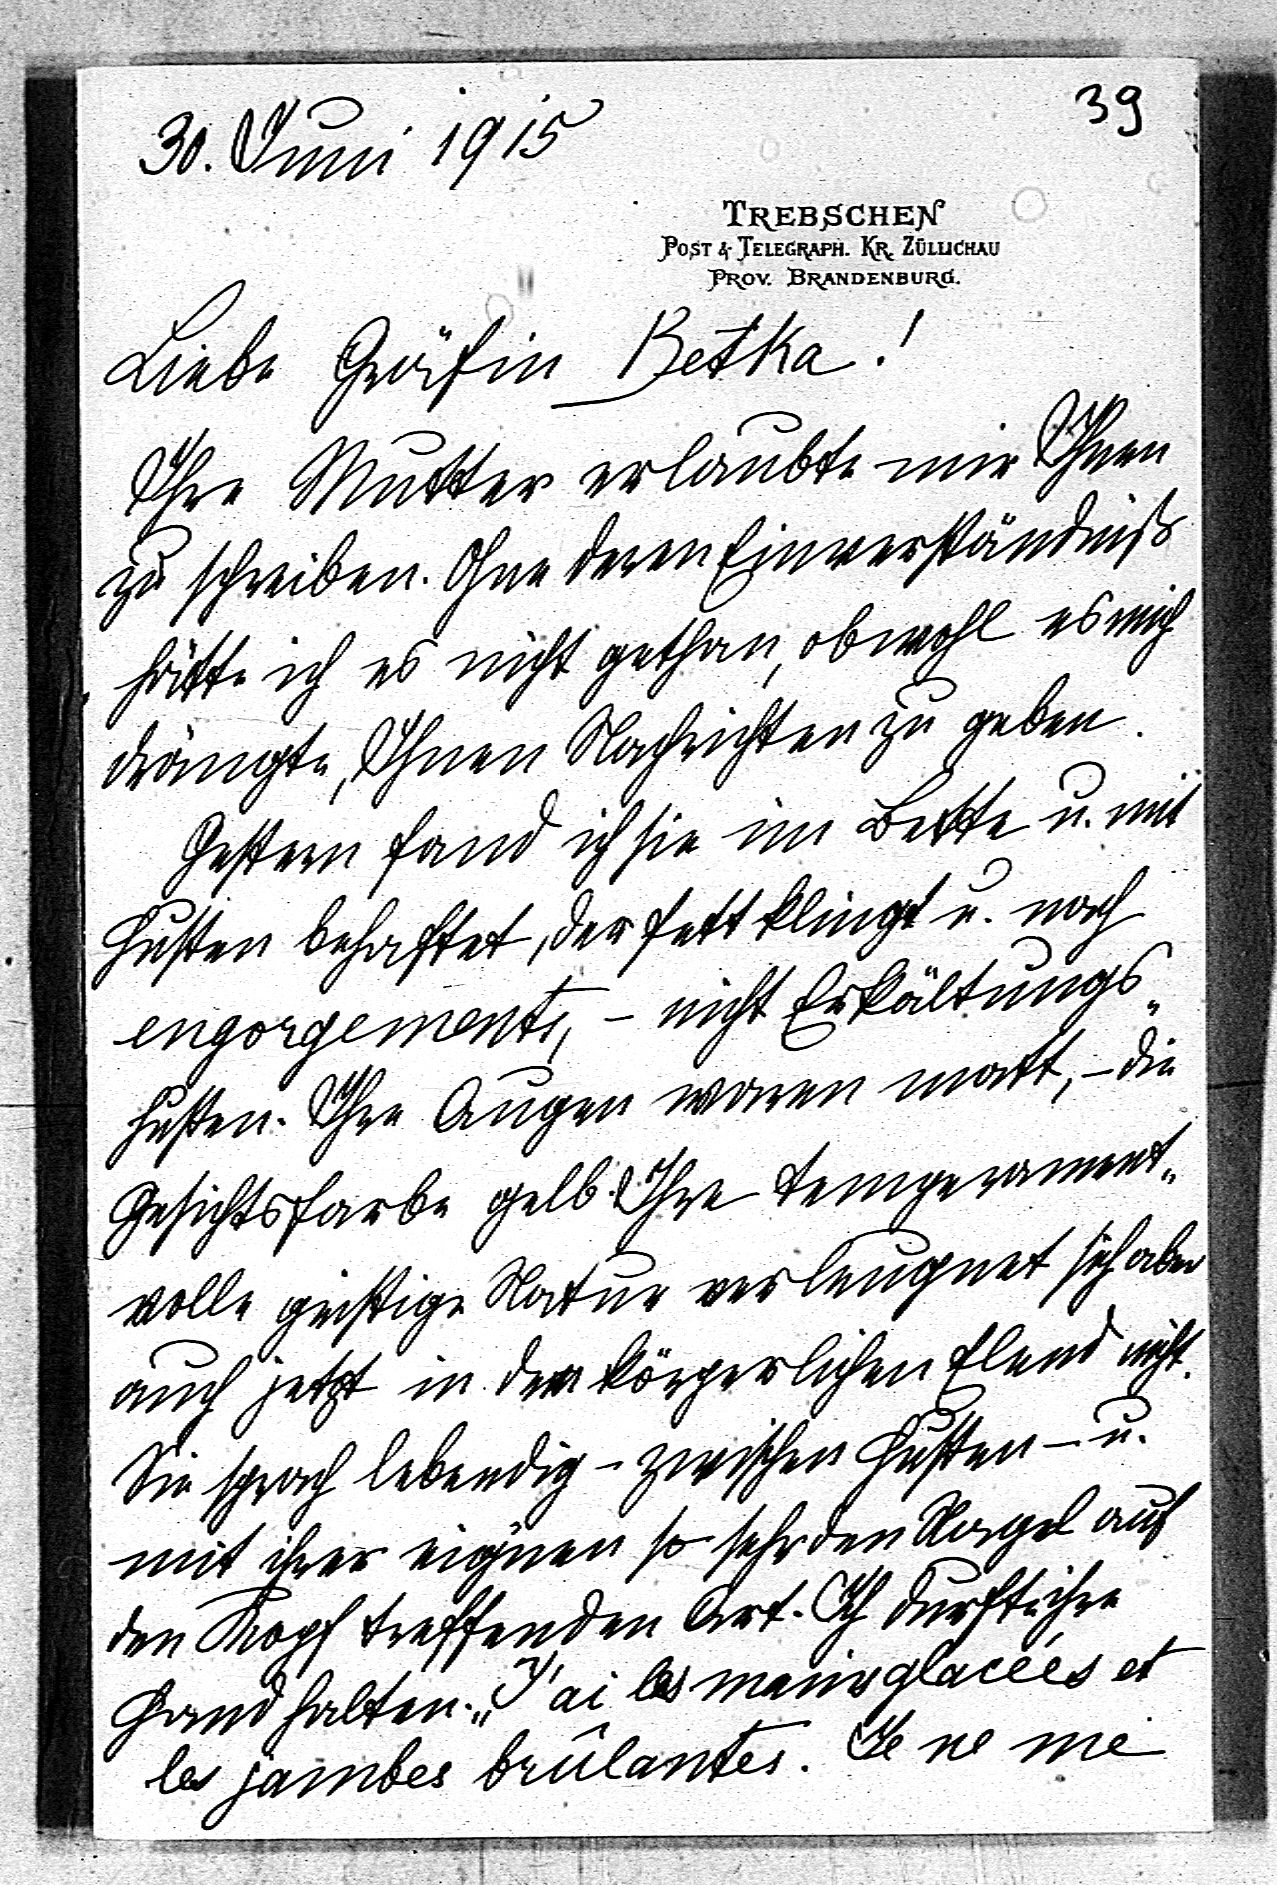 39
30. Juni 1915
TREBSCHEN
POST & TELEGRAPH. KR. ZÜLLICHAU
PROV. BRANDENBURG.
Liebe Gräfin Betka!
Ihre Mutter erlaubte mir Ihnen
zu schreiben. Ohne deren Einverständniß
hätte ich es nicht gethan, obwohl es mich
drängte, Ihnen Nachrichten zu geben.
Gestern fand ich sie im Bette u. mit
Husten behaftet, der fett klingt u. nach
engorgements, – nicht Erkältungs„
husten. Ihre Augen waren matt, – die
Gesichtsfarbe gelb. Ihre temperament„
volle geistige Natur verleugnet sich aber
auch jetzt in dem körperlichen Elend nicht.
Sie sprach lebendig – zwischen Husten – u.
mit ihrer eignen so sehr den Nagel auf
den Kopf treffenden Art. Ich durfte ihre
Hand halten. „J'ai les mains glacées et
les jambes brûlantes. Je ne me